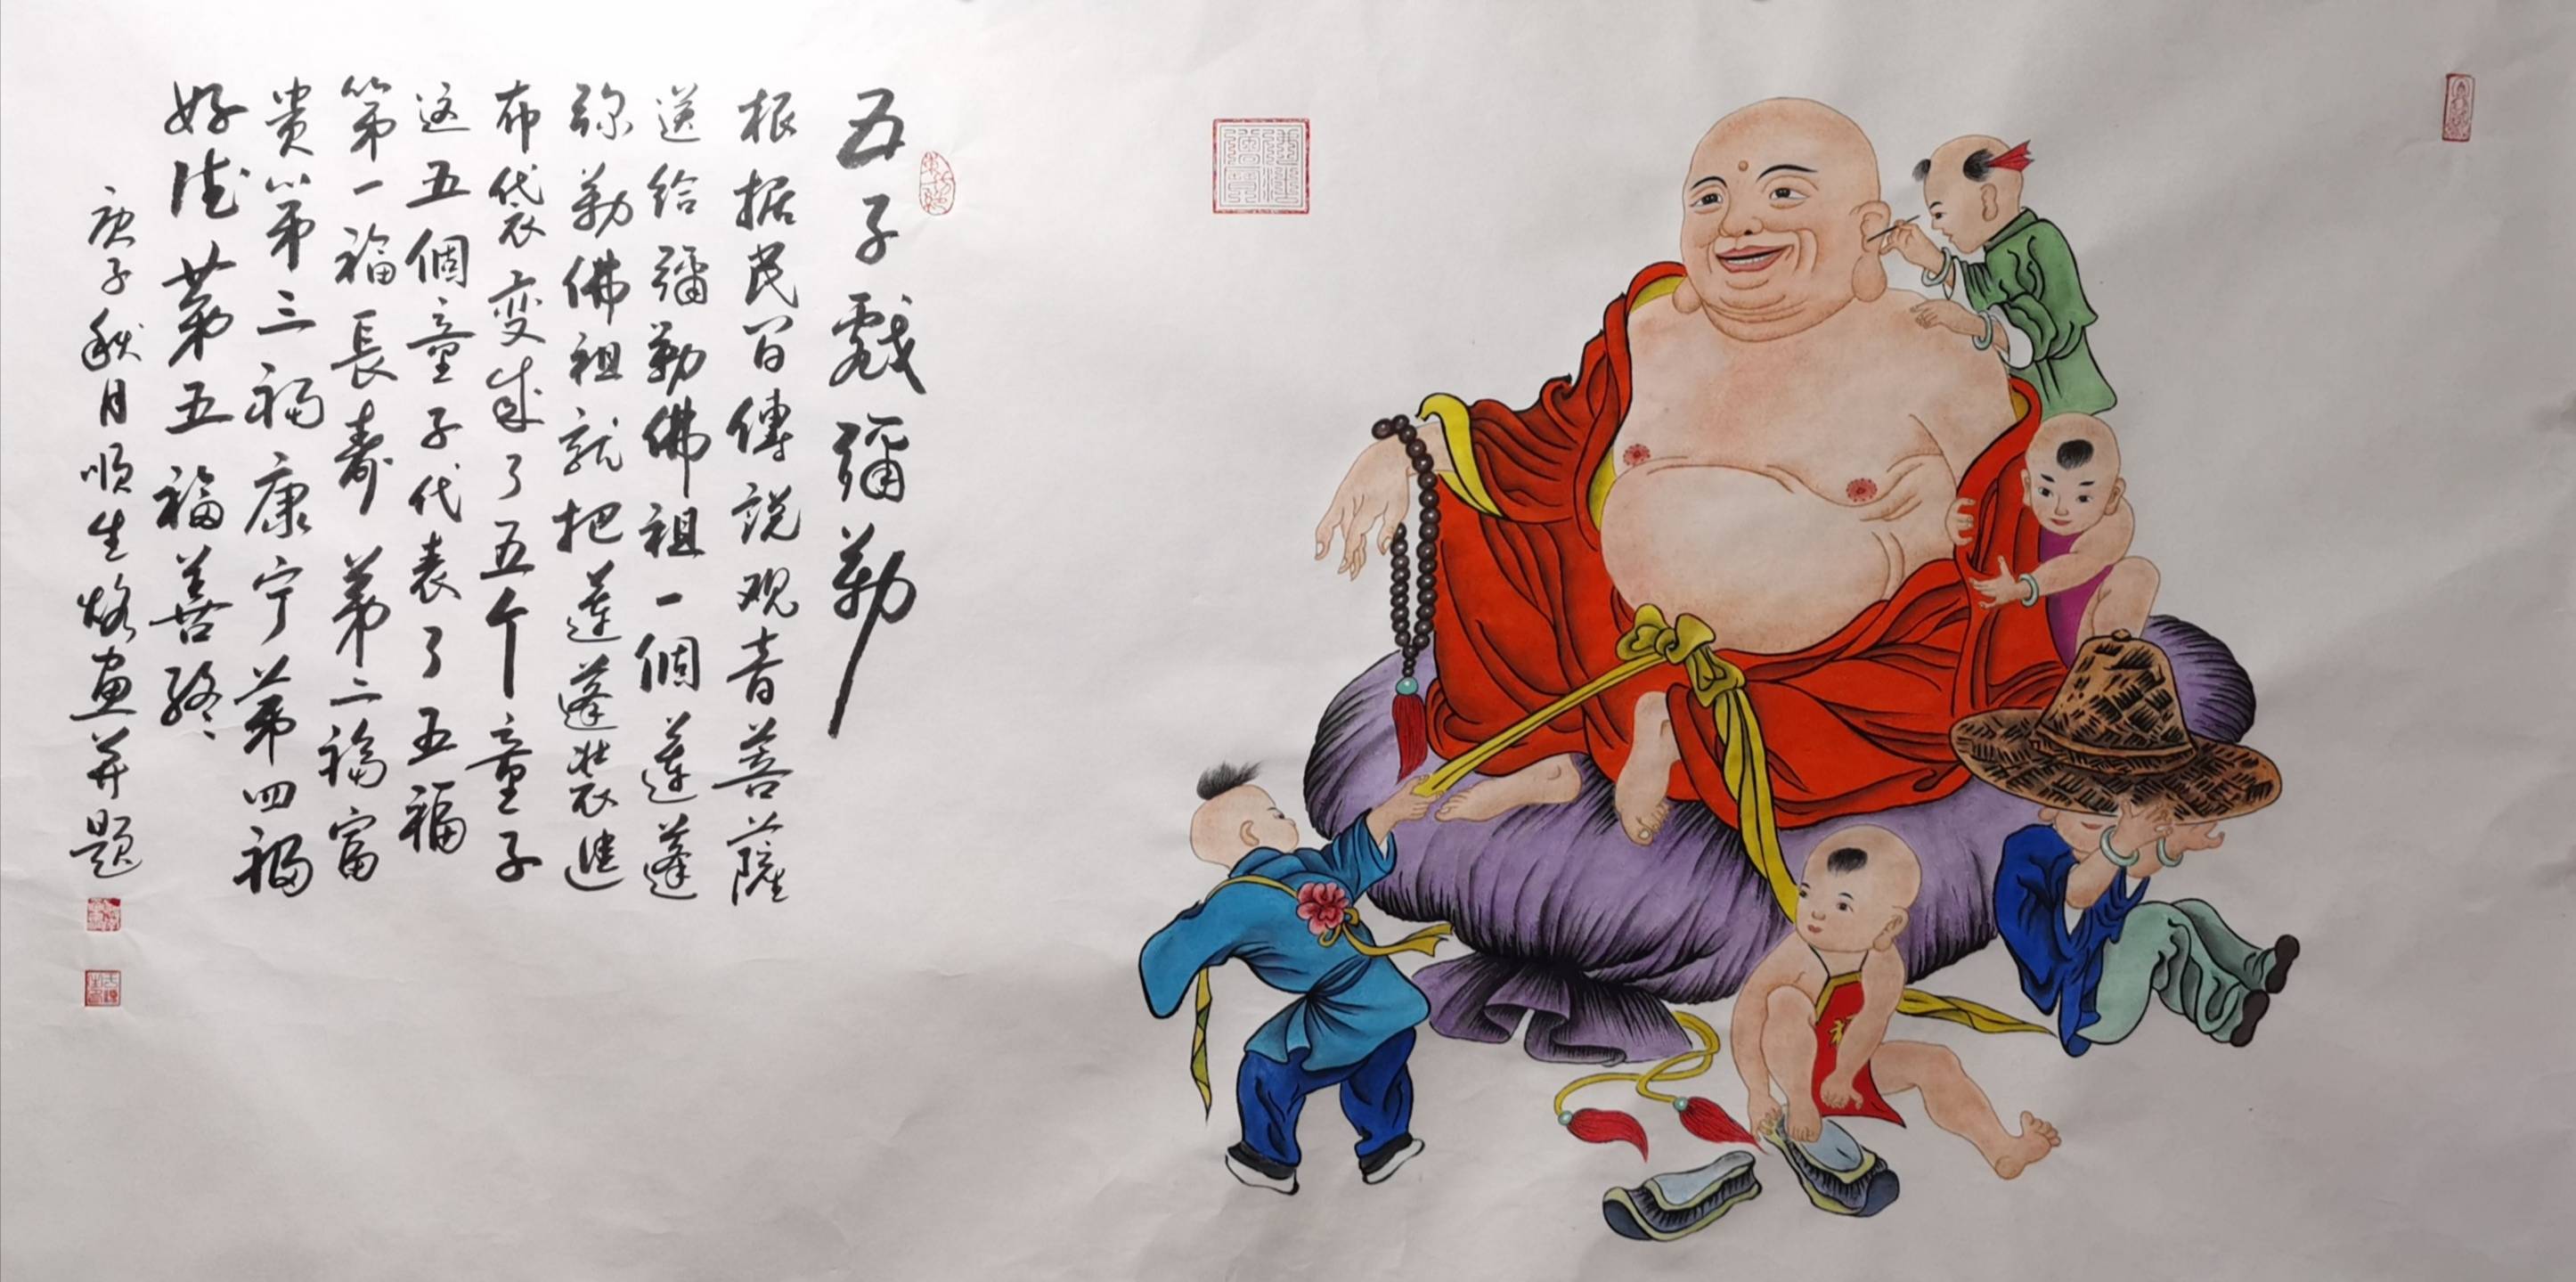 五子戲彌勒
根据民间傳說观音菩薩
送给彌勒佛祖一個蓮蓬
弥勒佛祖就把蓮蓬装進
布袋变成了五个童子
这五個童子代表了五福
第一福長寿第二福富
贵第三福康宁第四福
好德第五福善终
庚子秋月顺生烙画并题